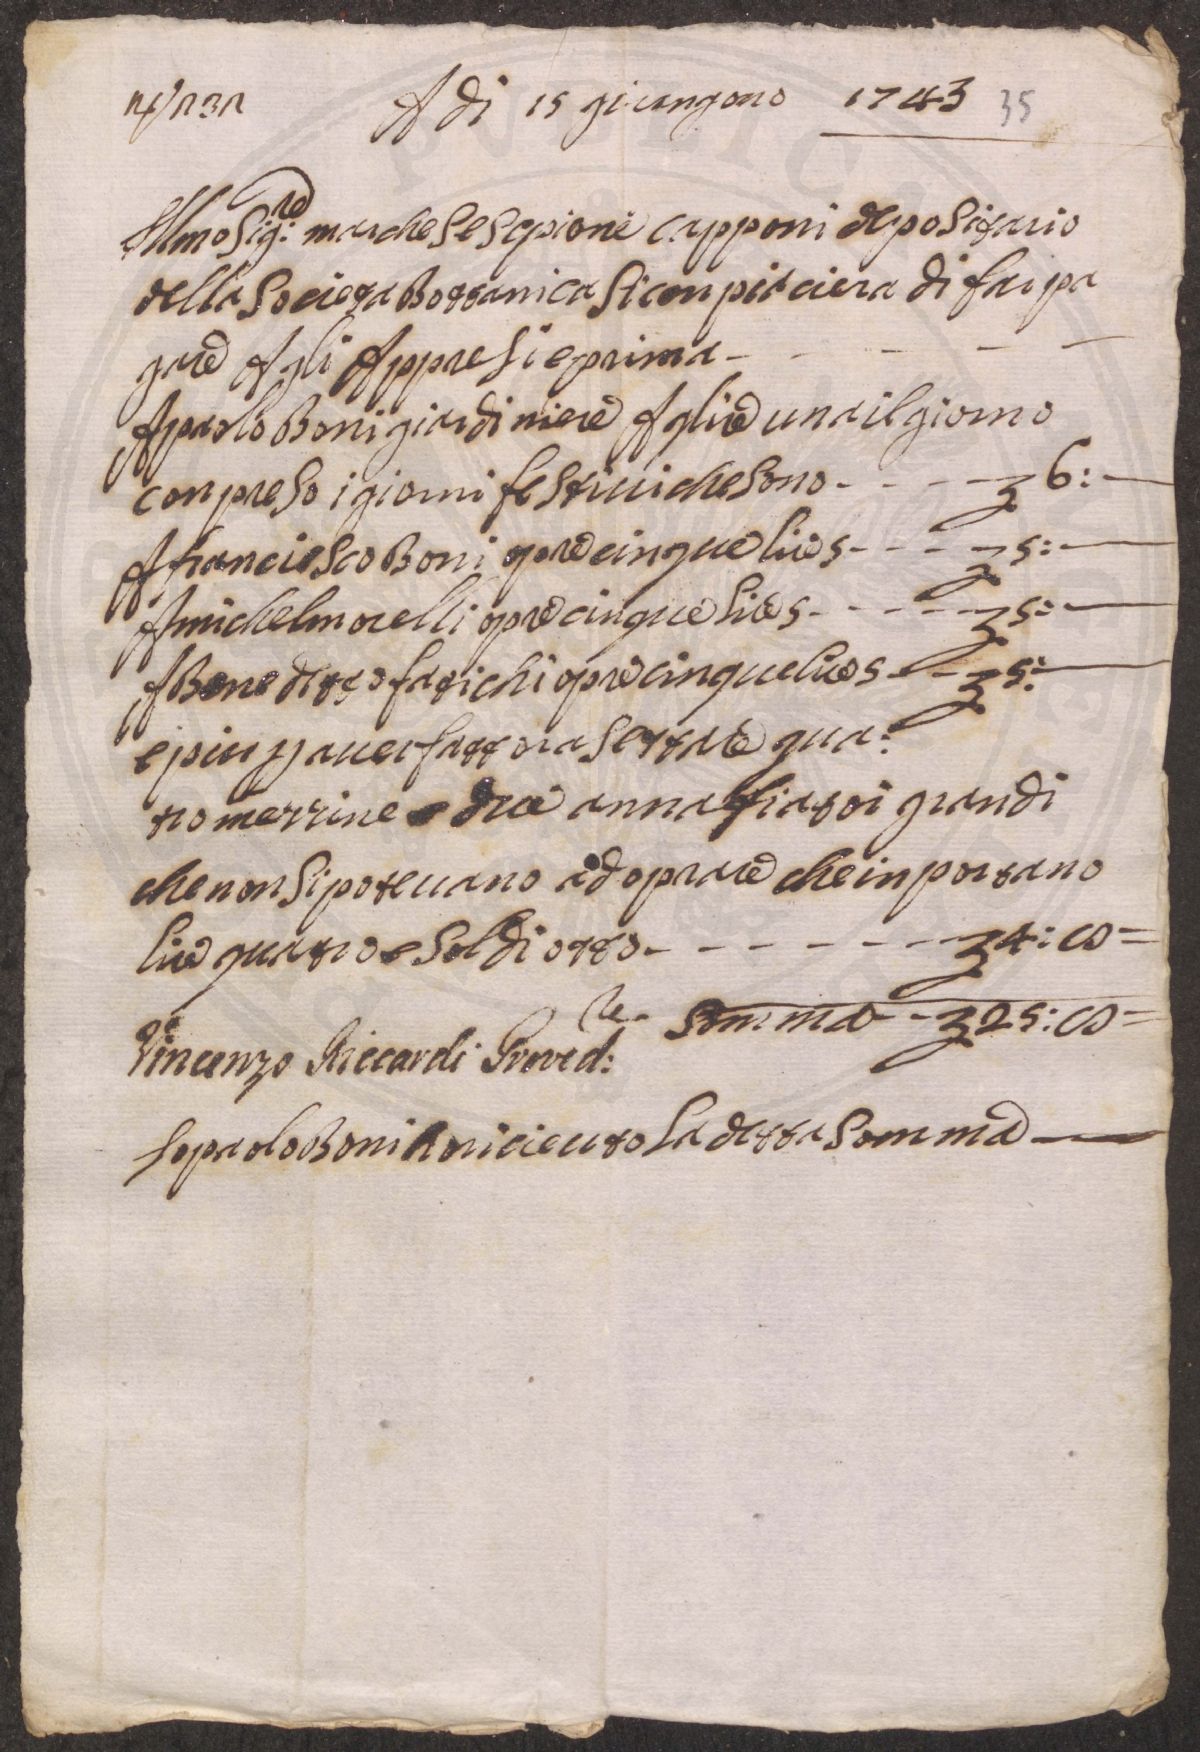 A di 15 giungono 1743 35
Illmo Sig:re marchese Scpione capponi depositario
della Societa Bottanica Si conpiaciera di far pa
gare A gli Appresi e prima - - - - -
A paolo Boni giardiniere A lire una il giorno
conpreso i giorni festiui che Sono - - - - 6: —
A franciesco Boni opre cinque lire 5 - - - - 5: —
A michel morelli opre cinque lire 5 - - - - 5: —
A Benedetto fatichi opre cinque lire 5 - - 5: —
e piu p auer fatto rasettare qua:
tro mezzine e dieci annaffiatoi grandi
che non Si poteuano adoprare che inportano
lire quattro e Soldi otto - - - - - - 4: 8 =
Somma - 25: 8 =
Vincenzo Riccardi Proved:re
Io paolo Boni ho riceuto La detta Somma —